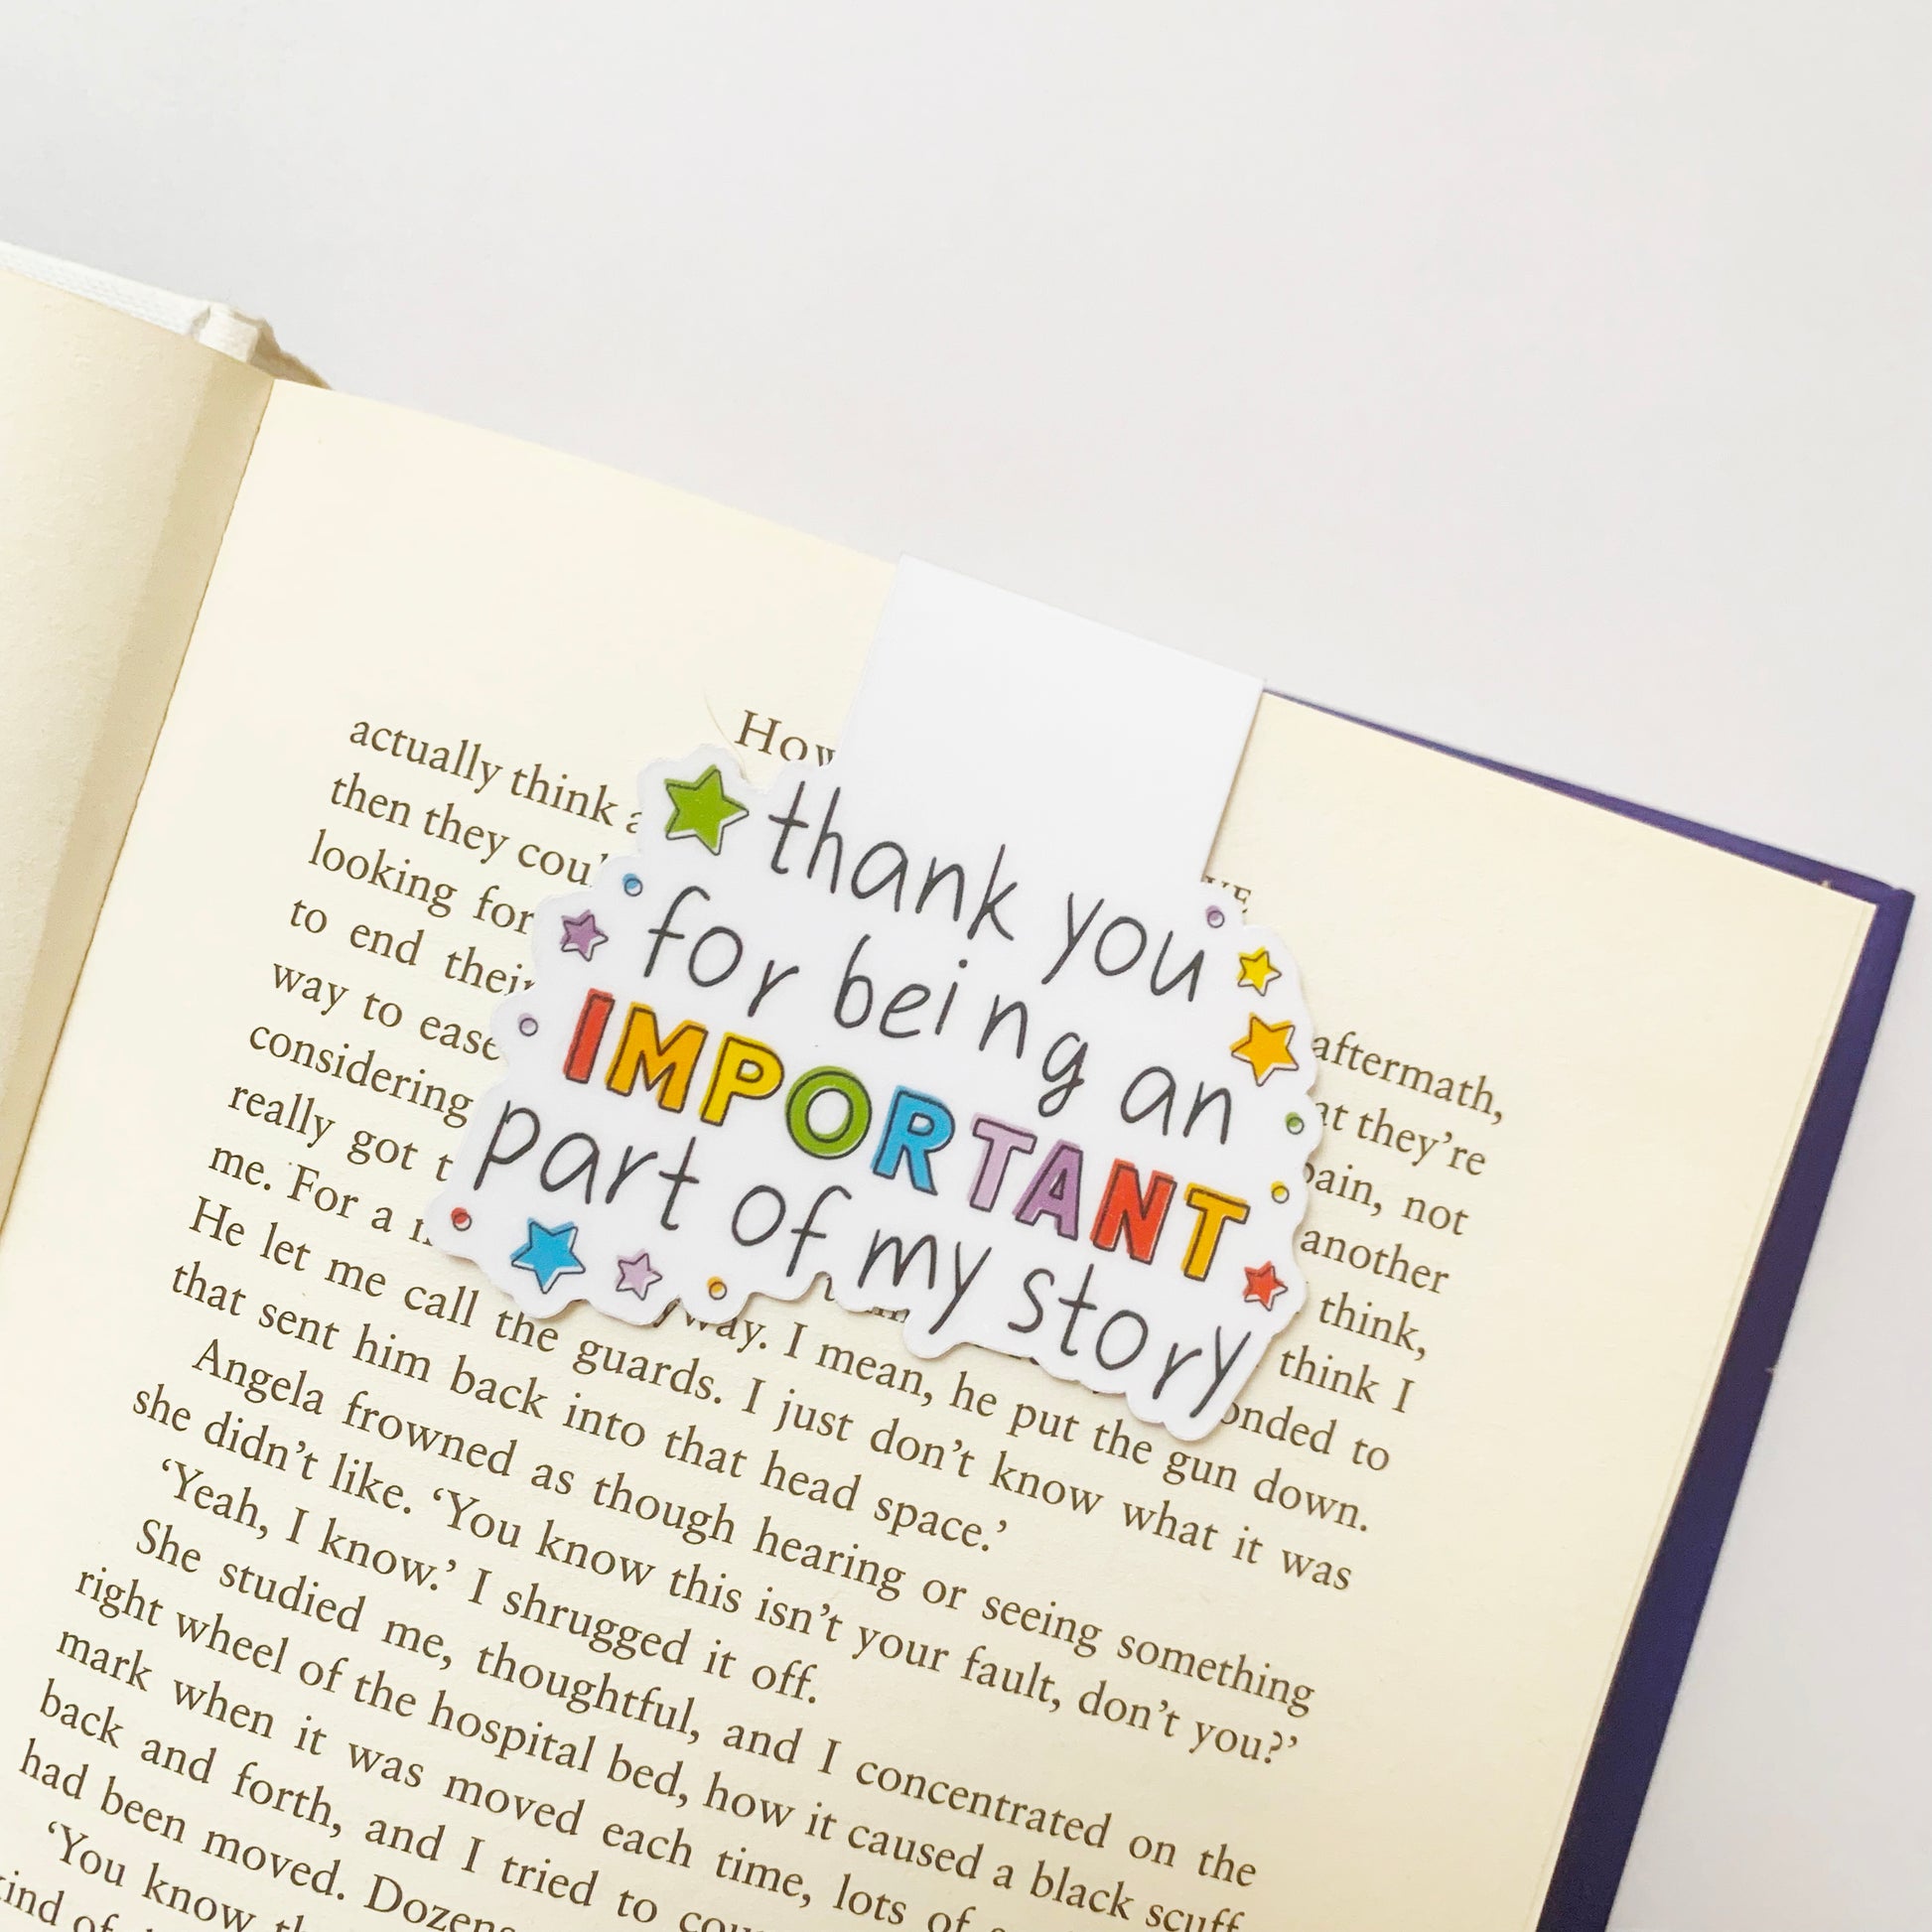 thank you
for being an
IMPORTANT
part of my story
How
actually think
then they
looking for aftermath,
to end their they're
way to ease pain, not
considering another
really got think,
me. For a think I
to
He let me call the guards. I mean, he put the gun down.
that sent him back into that head space.' I just don't know what it was
Angela frowned as though hearing or seeing something
she didn't like. 'You know this isn't your fault, don't you?'
'Yeah, I know.' I shrugged it off.
She studied me, thoughtful, and I concentrated on the
right wheel of the hospital bed, how it caused a black scuff
mark when it was moved each time, lots of
back and forth, and I tried to
had been moved. Dozens
'You know
of